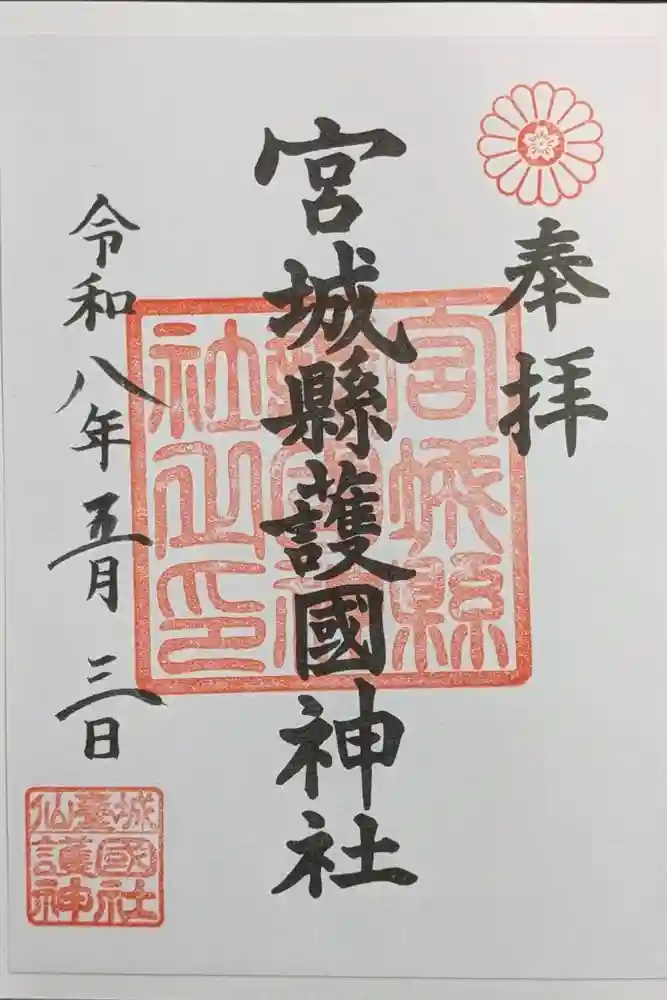 奉拝
宮城縣護國神社
令和八年五月三日
宮城縣
護國神
社之印
仙臺城
護國
神社